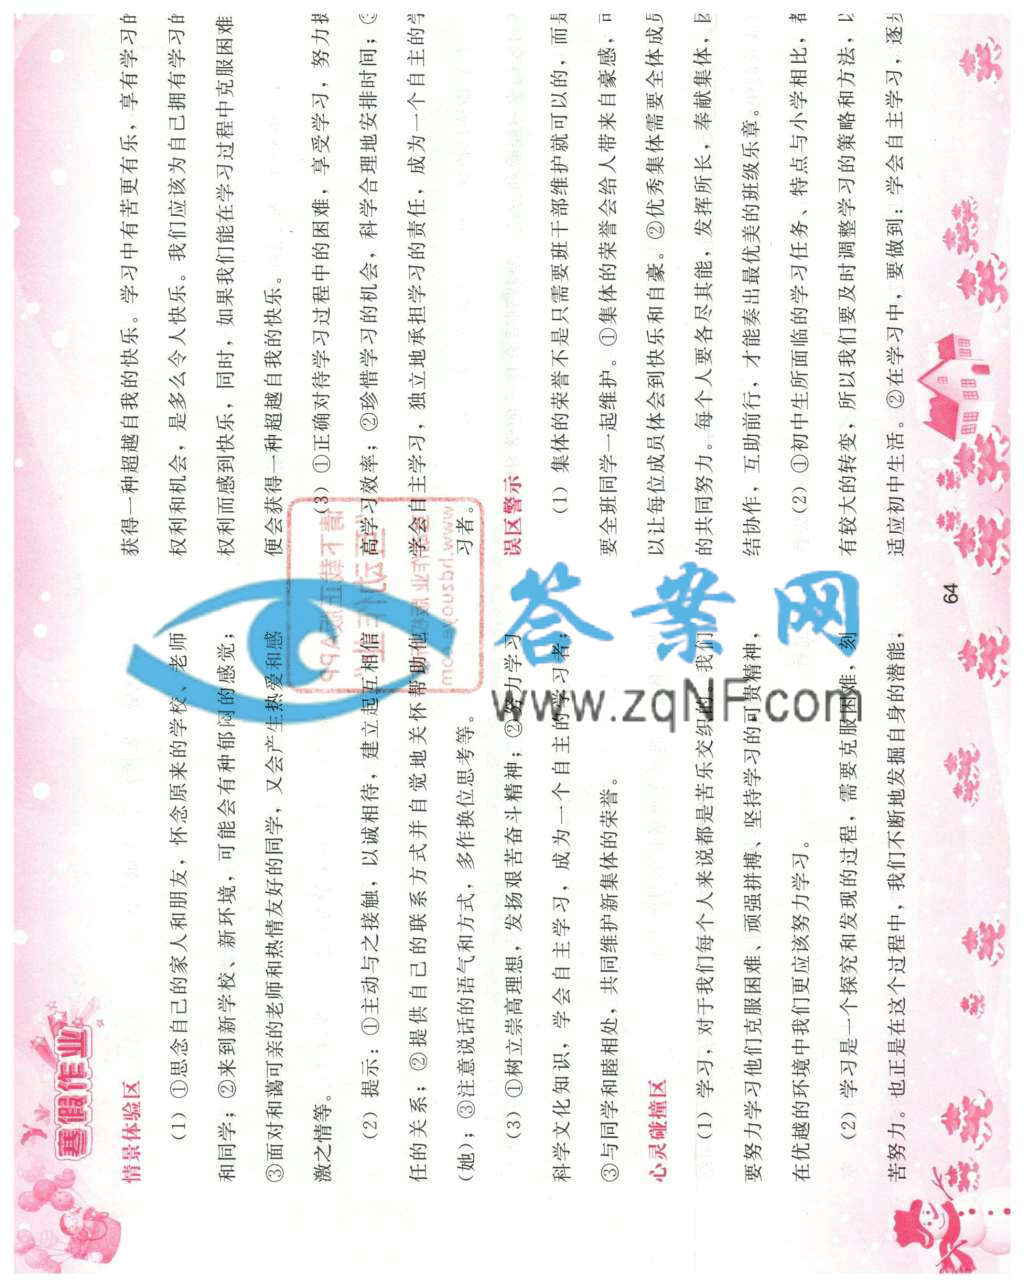 寒假作业
情景体验区
(1) ①思念自己的家人和朋友，怀念原来的学校、老师
和同学；②来到新学校、新环境，可能会有种郁闷的感觉；
③面对和蔼可亲的老师和热情友好的同学，又会产生热爱和感
激之情等。
(2) 提示：①主动与之接触，以诚相待，建立起互相信
任的关系；②提供自己的联系方式并自觉地关怀帮助他
(她)；③注意说话的语气和方式，多作换位思考等。
(3) ①树立崇高理想，发扬艰苦奋斗精神；②努力学习
科学文化知识，学会自主学习，成为一个自主的学习者；
③与同学和睦相处，共同维护新集体的荣誉。
心灵碰撞区
(1) 学习，对于我们每个人来说都是苦乐交织的。我们
要努力学习他们克服困难、顽强拼搏、坚持学习的可贵精神，
在优越的环境中我们更应该努力学习。
(2) 学习是一个探究和发现的过程，需要克服困难，刻
苦努力。也正是在这个过程中，我们不断地发掘自身的潜能，
获得一种超越自我的快乐。学习中有苦更有乐，享有学习的
权利和机会，是多么令人快乐。我们应该为自己拥有学习的
权利而感到快乐，同时，如果我们能在学习过程中克服困难
便会获得一种超越自我的快乐。
(3) ①正确对待学习过程中的困难，享受学习，努力提
高学习效率；②珍惜学习的机会，科学合理地安排时间；③
学会自主学习，独立地承担学习的责任，成为一个自主的学
习者。
误区警示
(1) 集体的荣誉不是只需要班干部维护就可以的，而是
要全班同学一起维护。①集体的荣誉会给人带来自豪感，可
以让每位成员体会到快乐和自豪。②优秀集体需要全体成员
的共同努力。每个人要各尽其能，发挥所长，奉献集体，
结协作，互助前行，才能奏出最优美的班级乐章。
(2) ①初中生所面临的学习任务、特点与小学相比，者
有较大的转变，所以我们要及时调整学习的策略和方法，以
适应初中生活。②在学习中，要做到：学会自主学习，逐步
64
答案网
www.zqNF.com